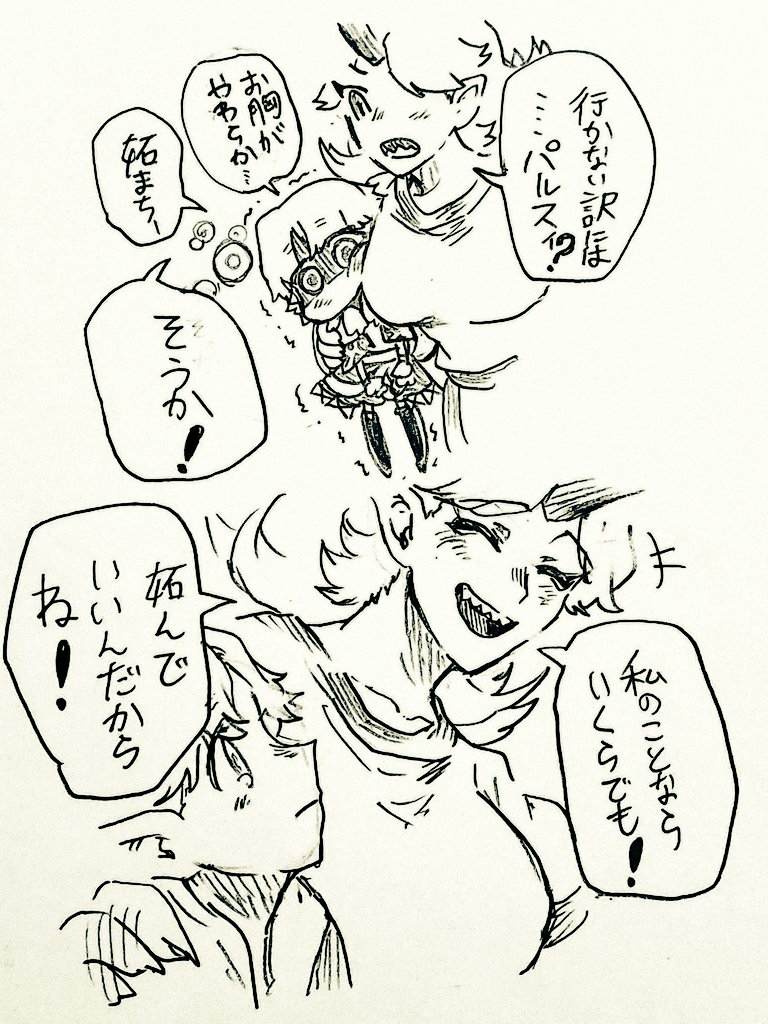 行かない訳には
……パルスィ?
お胸が
やわらか…
妬まちー
そうか!
私のことなら
いくらでも!
妬んで
いいんだから
ね!